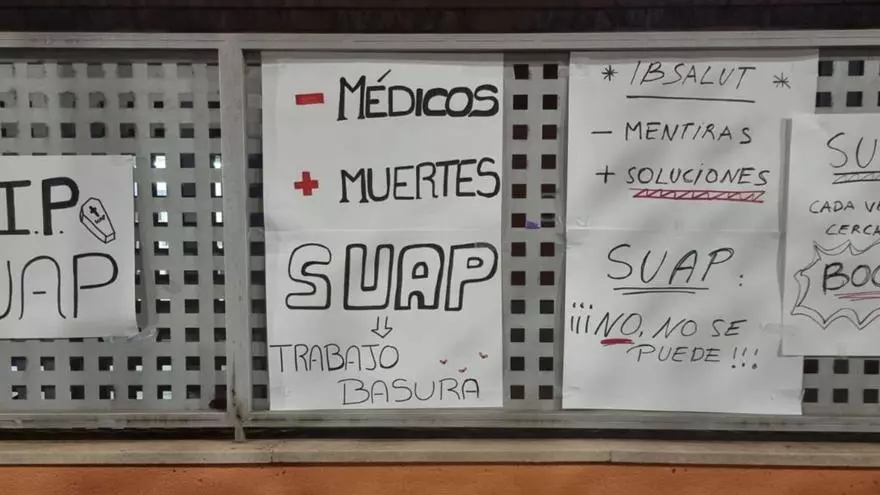 .I.P.
SUAP
- MÉDICOS
+ MUERTES
SUAP
TRABAJO
BASURA
* IBSALUT *
- MENTIRAS
+ SOLUCIONES
SUAP.
¡¡¡NO, NO SE
PUEDE!!!
SU
CADA VE
CERCA
BOC